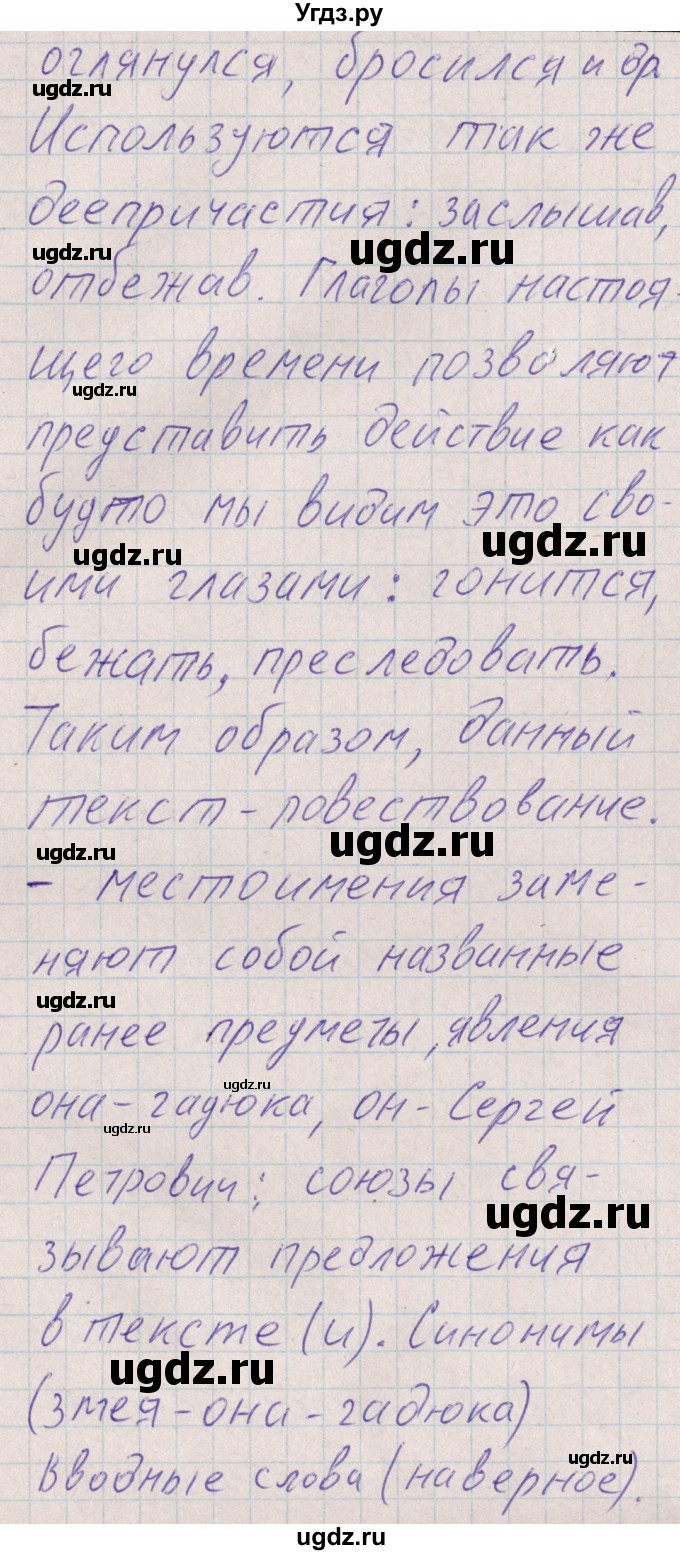 Угдз.ру
оглянулся, бросился и др.
ugdz.ru
Используются так же
деепричастия: заслышав,
ugdz.ru ugdz.ru
отбежав. Глаголы настоя-
щего времени позволяют
ugdz.ru
представить действие как
будто мы видим это сво-
ugdz.ru ugdz.ru
ими глазами: гонится,
бежать, преследовать.
Таким образом, данный
текст - повествование.
ugdz.ru ugdz.ru
- местоимения заме-
няют собой названные
ugdz.ru
ранее предметы, явления
ugdz.ru
она - гадюка, он - Сергей
ugdz.ru
Петрович; союзы свя-
ugdz.ru
зывают предложения
в тексте (и). Синонимы
ugdz.ru
(змея - она - гадюка)
ugdz.ru
Вводные слова (наверное).
ugdz.ru